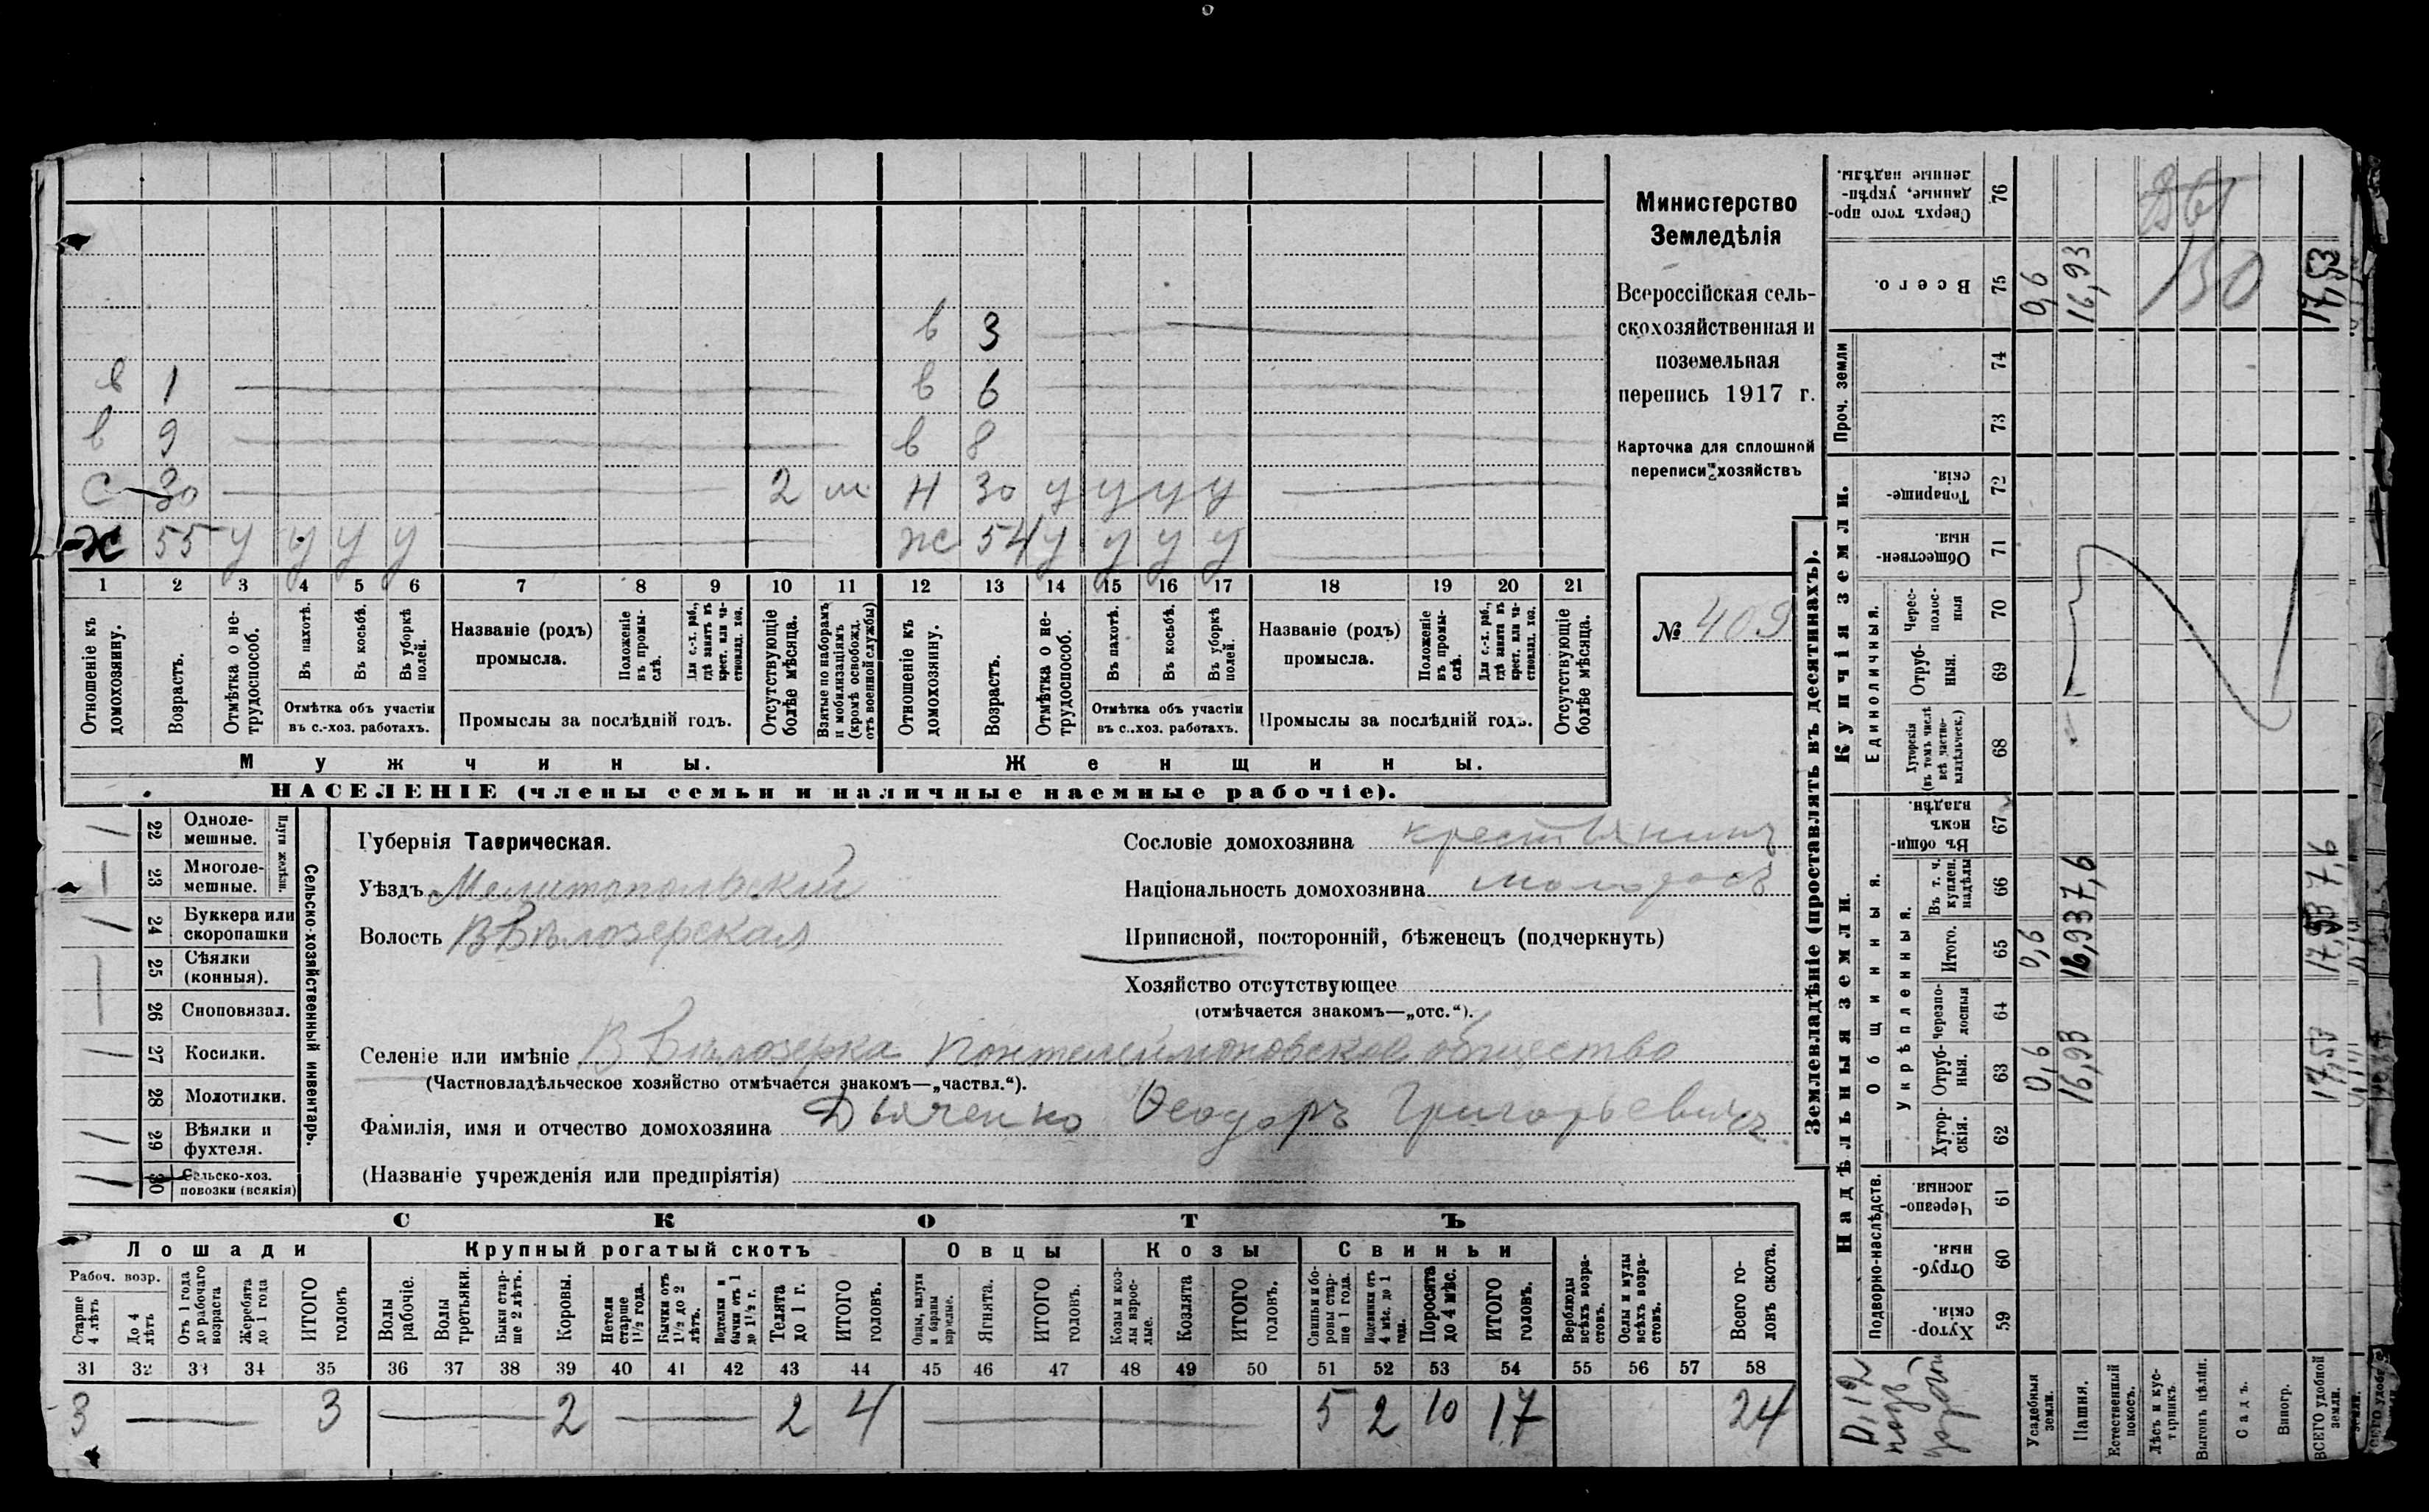 в 3
в 1 в 6
в 9 в 8
с 30 2 м Н 30 у у у у
ж 55 у у у у ж 54 у у у у
1 2 3 4 5 6 7 8 9 10 11 12 13 14 15 16 17 18 19 20 21
Отношеніе къ домохозяину.
Возрастъ.
Отмѣтка о не-трудоспособ.
Въ пахотѣ.
Въ косьбѣ.
Въ уборкѣ полей.
Отмѣтка объ участіи
въ с.-хоз. работахъ.
Названіе (родъ)
промысла.
Положеніе въ промы-слѣ.
Для с.-х. раб., гдѣ занятъ въ крест. или ча-стновлад. хоз.
Промыслы за послѣдній годъ.
Отсутствующіе болѣе мѣсяца.
Взятые по наборамъ и мобилизаціямъ (кромѣ освобожд. отъ военной службы)
Отношеніе къ домохозяину.
Возрастъ.
Отмѣтка о не-трудоспособ.
Въ пахотѣ.
Въ косьбѣ.
Въ уборкѣ полей.
Отмѣтка объ участіи
въ с.-хоз. работахъ.
Названіе (родъ)
промысла.
Положеніе въ промы-слѣ.
Для с.-х. раб., гдѣ занята въ крест. или ча-стновлад. хоз.
Промыслы за послѣдній годъ.
Отсутствующіе болѣе мѣсяца.
Мужчины. Женщины.
НАСЕЛЕНІЕ (члены семьи и наличные наемные рабочіе).
Министерство
Земледѣлія
Всероссійская сель-
скохозяйственная и
поземельная
перепись 1917 г.
Карточка для сплошной
переписи хозяйствъ
№ 409
22 Одноле-мешные.
23 Многоле-мешные.
Плуги желѣзн.
24 Буккера или скоропашки
25 Сѣялки (конныя).
26 Сноповязал.
27 Косилки.
28 Молотилки.
29 Вѣялки и фухтеля.
30 Сельско-хоз. повозки (всякія)
Сельско-хозяйственный инвентарь.
Губернія Таврическая.
Уѣздъ Мелитопольскій
Волость В Бѣлозерская
Сословіе домохозяина крестьянинъ
Національность домохозяина малороссъ
Приписной, посторонній, бѣженецъ (подчеркнуть)
Хозяйство отсутствующее
(отмѣчается знакомъ—„отс.“).
Селеніе или имѣніе В Бѣлозерка Понтелеймоновское общество
(Частновладѣльческое хозяйство отмѣчается знакомъ—„частвл.“).
Фамилія, имя и отчество домохозяина Дьяченко Ѳеодоръ Григорьевичъ
(Названіе учрежденія или предпріятія)
СКОТЪ
Лошади Крупный рогатый скотъ Овцы Козы Свиньи
Рабоч. возр.
Старше 4 лѣтъ
До 4 лѣтъ
Отъ 1 года до рабочаго возраста
Жеребята до 1 года
ИТОГО головъ
Волы рабочіе.
Волы третьяки.
Быки стар-ше 2 лѣтъ.
Коровы.
Нетели старше 1½ года.
Бычки отъ 1½ до 2 лѣтъ.
Подтелки и бычки отъ 1 до 1½ г.
Телята до 1 г.
ИТОГО головъ.
Овцы, валухи и бараны взрослые.
Ягнята.
ИТОГО головъ.
Козы и коз-лы взрос-лые.
Козлята
ИТОГО головъ.
Свиньи и бо-ровы стар-ше 1 года.
Подсвинки отъ 4 мѣс. до 1 года.
Поросята до 4 мѣс.
ИТОГО головъ.
Верблюды всѣхъ возра-стовъ.
Ослы и мулы всѣхъ возра-стовъ.
Всего го-ловъ скота.
31 32 33 34 35 36 37 38 39 40 41 42 43 44 45 46 47 48 49 50 51 52 53 54 55 56 57 58
3 3 2 2 4 5 2 10 17 24
Землевладѣніе (проставлять въ десятинахъ).
Надѣльныя земли. Купчія земли. Проч. земли
Подворно-наслѣдств. Общинныя. Единоличныя.
Укрѣпленныя.
Хутор-скія. 59
Отруб-ныя. 60
Черезпо-лосныя. 61
Хутор-скія. 62
Отруб-ныя. 63
Черезпо-лосныя 64
Итого. 65
Въ т. ч. куплен. надѣлы 66
Въ общи-номъ владѣн. 67
Хуторскія (въ томъ числѣ всѣ частно-владѣльческ.) 68
Отруб-ныя. 69
Черес-полос-ныя 70
Обществен-ныя. 71
Товарище-скія 72
73
74
Всего. 75
Сверхъ того про-данные, укрѣп-ленные надѣлы. 76
Усадебныя земли. 0,6 0,6 0,6
Пашня. 16,93 16,93 7,6 16,93
Естественный покосъ.
Лѣсъ и кус-тарникъ.
Выгонъ цѣлин.
Садъ.
Виногр.
ВСЕГО удобной земли. 17,53 17,53 7,6 17,53
130